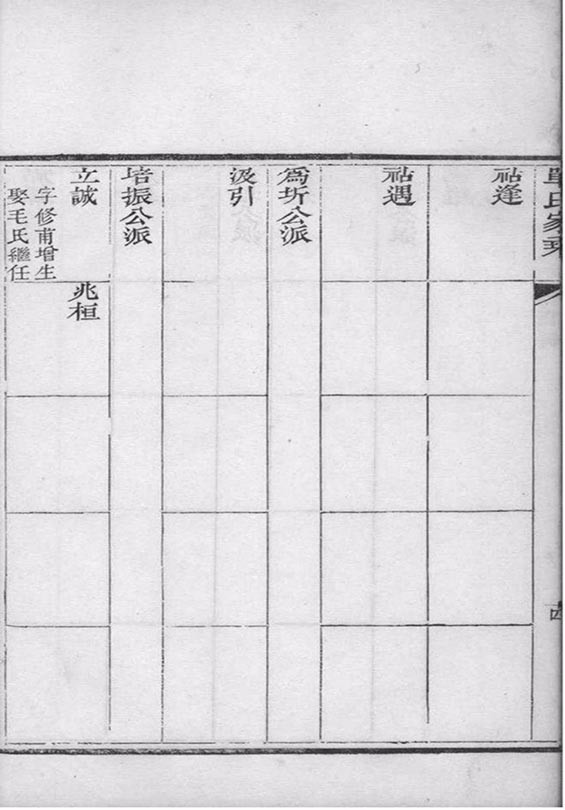 單氏家乘
祜逢
祜遇
為圻公派
汲引
培振公派
立誠
字修甫增生
娶毛氏繼任
兆桓